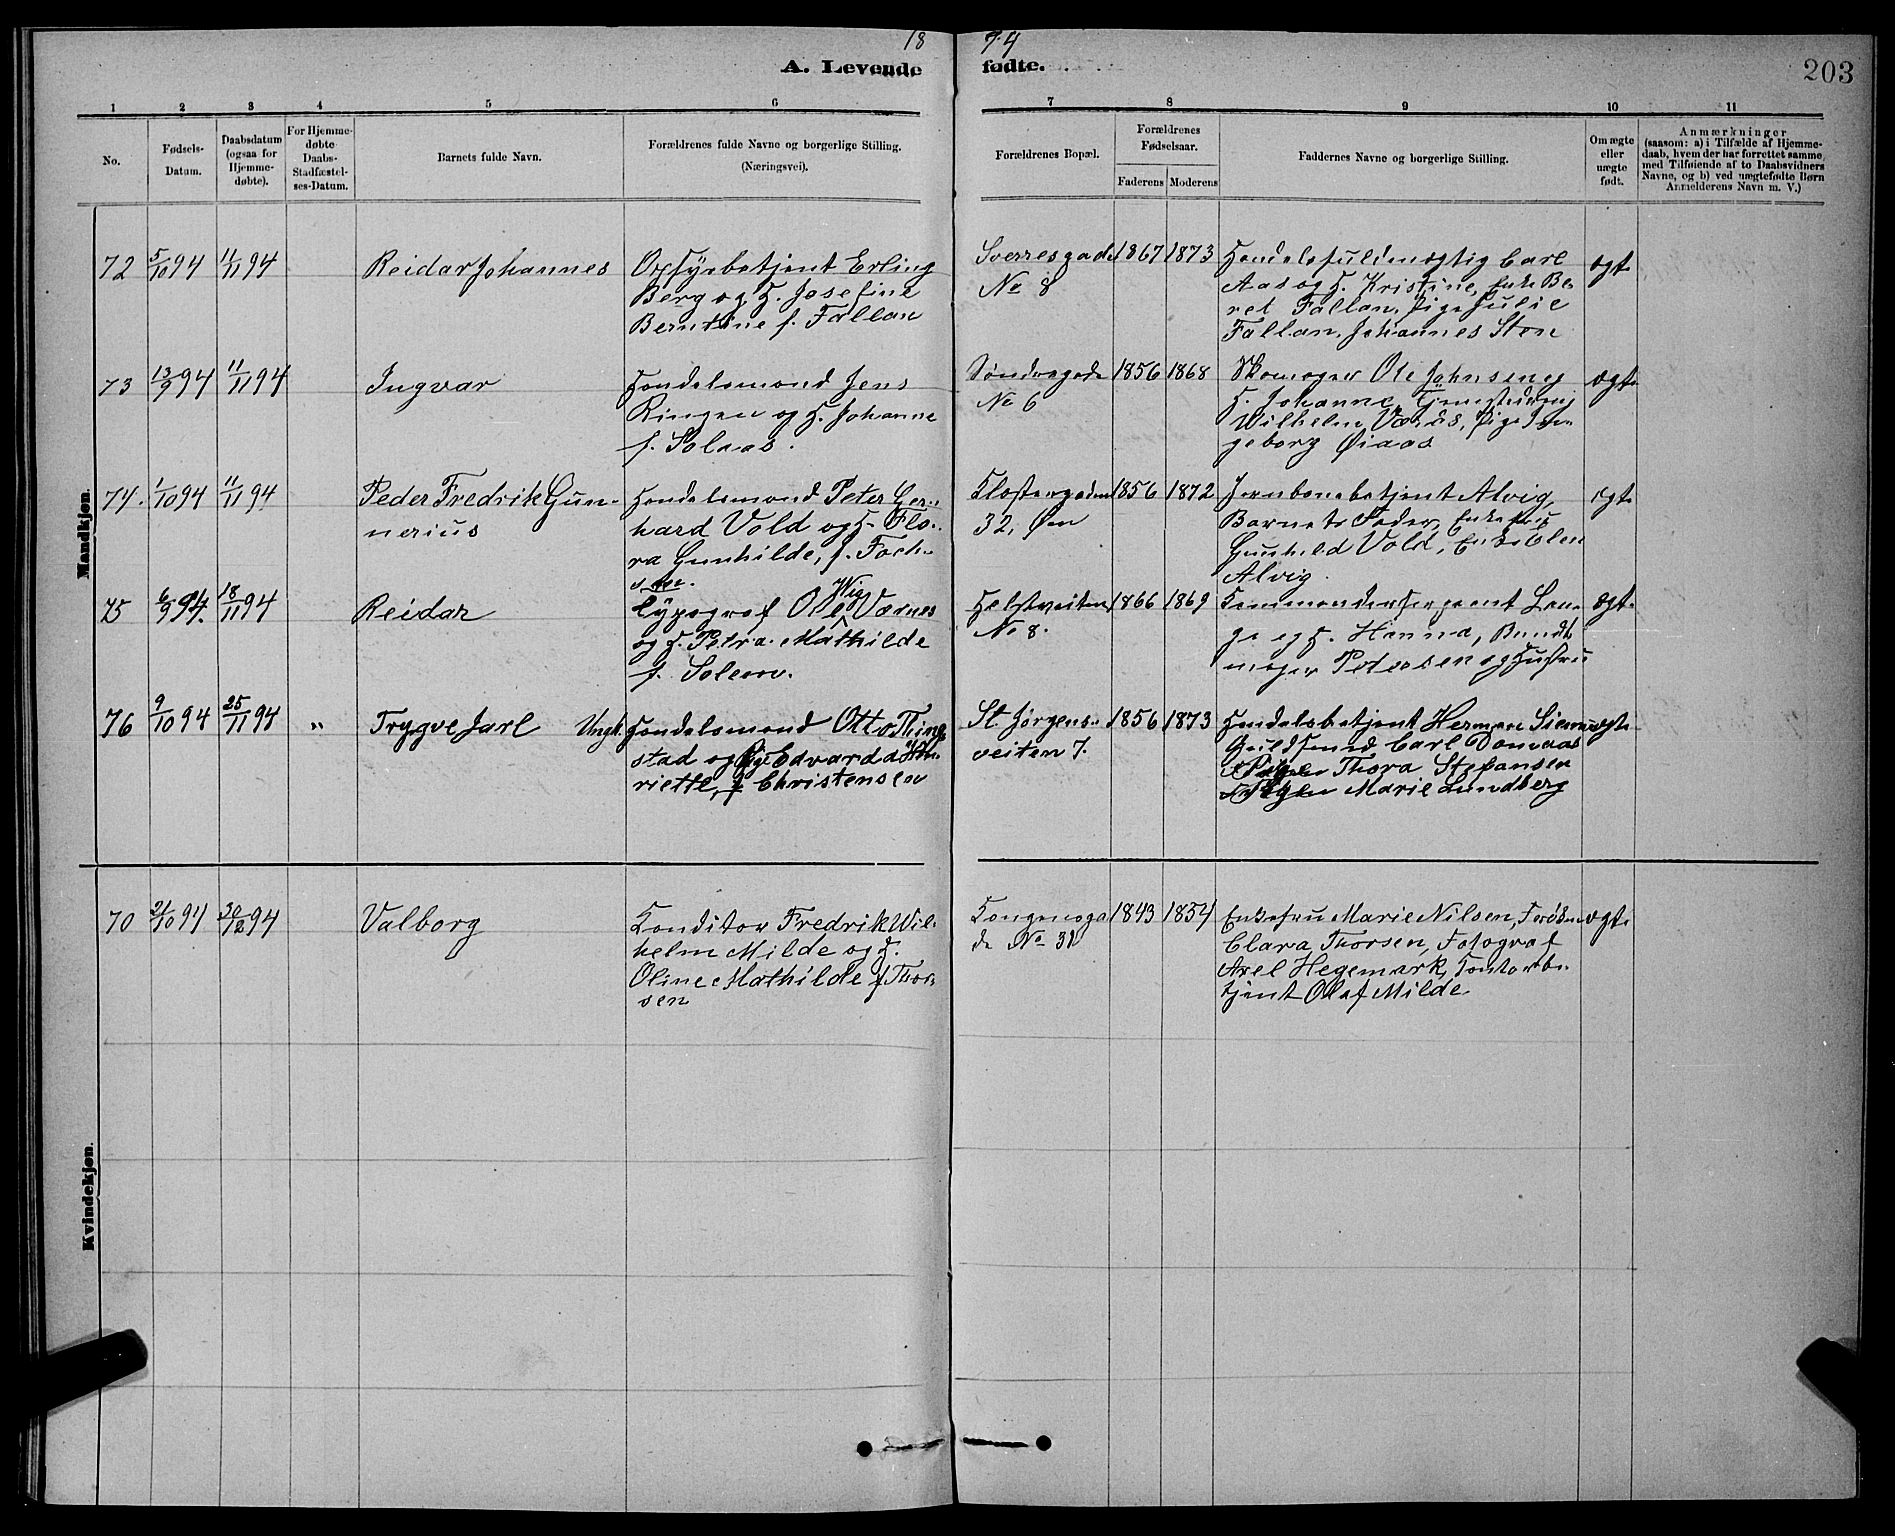 18 94
A. Levende fødte.
203
1 2 3 4 5 6 7 8 9 10 11
No.
Fødsels-
Datum.
Daabsdatum
(ogsaa for
Hjemme-
døbte).
For Hjemme-
døbte
Daabs-
Stadfæstel-
ses-Datum.
Barnets fulde Navn.
Forældrenes fulde Navne og borgerlige Stilling.
(Næringsvei).
Forældrenes Bopæl.
Forældrenes
Fødselsaar.
Faderens Moderens
Faddernes Navne og borgerlige Stilling.
Om ægte
eller
uægte
født.
Anmærkninger
(saasom: a) i Tilfælde af Hjemme-
daab, hvem der har forrettet samme,
med Tilføiende af to Daabsvidners
Navne, og b) ved uægtefødte Børn
Anmelderens Navn m. V.)
Mandkjøn.
72 5/10 94 11/11 94 Reidar Johannes
Opsynsbetjent Erling
Berg og H. Josefine
Berntine f. Fallan
Sverresgade
No 8
1867 1873
Handelsfuldmægtig Carl
Aas og H. Kristine, Enke Be-
ret Fallan, Pige Julie
Fallan, Johannes Sten
ægte
73 13/9 94 11/11 94 Ingvar
Handelsmand Jens
Ringen og H. Johanne
f. Solaas.
Søndregade
No 6
1856 1868
Skomager Ole Johnsen og
H. Johanne,
Wilhelm Pige In-
geborg Øiaas
ægte
74. 1/10 94 11/11 94 Peder Fredrik Gun-
nerius
Handelsmand Peter Ger-
hard Vold og H. Flo-
ra Gunhilde, f.
Klostergaden
32, Øen
1856 1872
Jernbanebetjent Alvig,
Barnets Fader, Enkefru
Gunhild Vold, Enke Elen
Alvig.
ægte
75 6/9 94. 18/11 94 Reidar
Typograf Ole Wig Værnes
og H. Petra Mathilde
f. Solem.
No 8.
1866 1869
Kommandersergeant Lan-
ge og H. Hanna, Bundt-
mager Petersen og Hustru
ægte
76 9/10 94 25/11 94 " Trygve Jarl Ungk.
Handelsmand Otto Thing-
stad og Pige Edvarda Hen-
riette, f Christensen
St. Jørgens-
veiten 7.
1856 1873
Handelsbetjent Herman
Guldsmed Carl Domaas
Pigen Thora Stefansen
Pigen Marie Lundberg
ægte
Kvindekjøn.
70 21/10 94 30/12 94 Valborg
Konditor Fredrik Wil-
helm Milde og H.
Oline Mathilde f Thor-
sen
Kongensga-
de No 31
1843 1854
Enkefru Marie Nilsen, Frøken
Clara Thorsen, Fotograf
Axel Hegemark, Kontorbe-
tjent Olaf Milde.
ægte